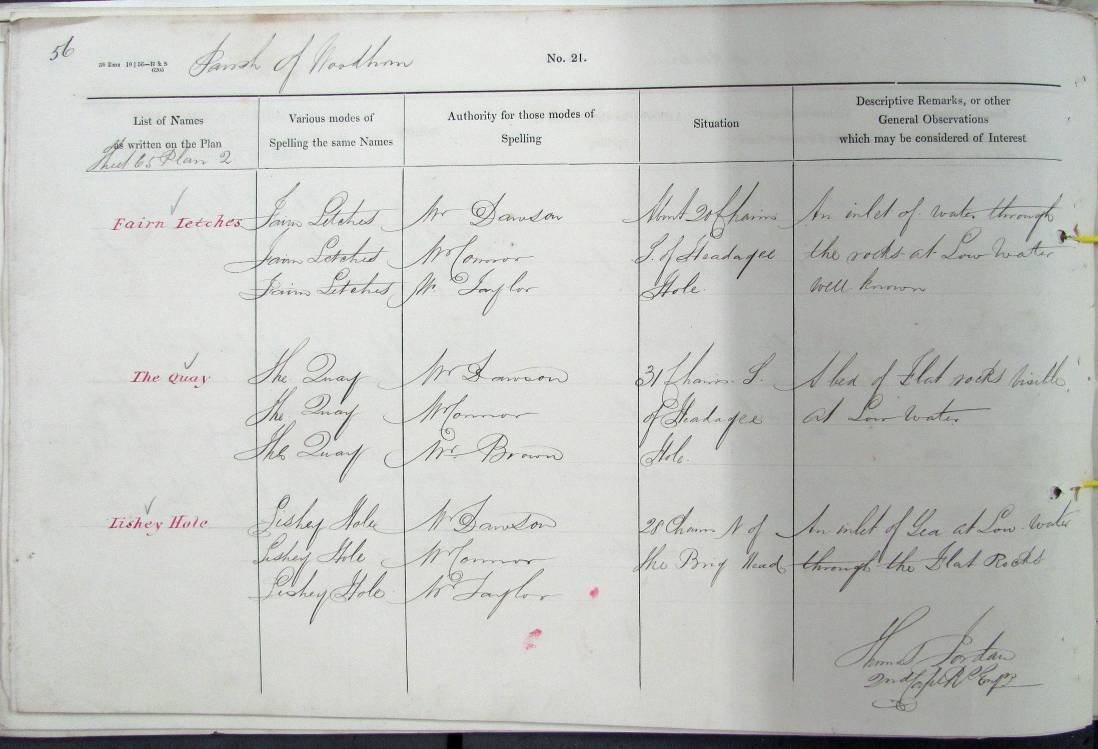 56
Parish of Woodhorn
No. 21.
List of Names
as written on the Plan
Sheet 65 Plan 2
Various modes of
Spelling the same Names
Authority for those modes of
Spelling
Situation
Descriptive Remarks, or other
General Observations
which may be considered of Interest
Fairn Letches
Fairn Letches
Fairn Letches
Fairn Letches
Mr Dawson
Mr Connor
Mr Taylor
About 20 Chains
S. of Headagee
Hole.
An inlet of water through
the rocks at Low Water
well known
The Quay
The Quay
The Quay
The Quay
Mr Dawson
Mr Connor
Mr. Brown
31 Chains. S.
of Headagee
Hole.
A bed of Flat rocks visible
at Low Water
Lishey Hole
Lishey Hole
Lishey Hole
Lishey Hole
Mr Dawson
Mr Connor
Mr Taylor
28 Chains N of
the Brig Head
An inlet of Sea at Low Water
through the Flat Rocks
Thomas Jordan
2nd Corpl Rl Engrs